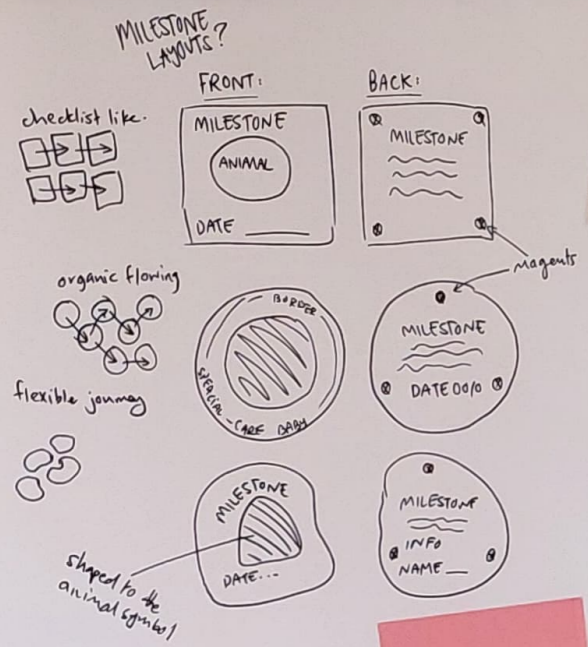 MILESTONE
LAYOUTS?
FRONT:
BACK:
checklist like.
MILESTONE
ANIMAL
DATE
MILESTONE
magents
organic flowing
BORDER
SPEACIAL-CARE BABY
MILESTONE
DATE 00/0
flexible journey
MILESTONE
DATE...
MILESTONE
INFO
NAME
shaped to the
animal symbol